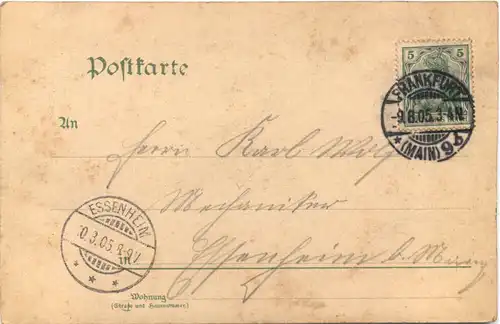 Postkarte
5 5
FRANKFURT
-9.8.05.3-4N
* (MAIN) 9 b
An
Herrn Karl Wolf
Mechaniker
ESSENHEIM
0.3.05.
in
Essenheim b. Mainz
Wohnung
(Straße und Hausnummer)